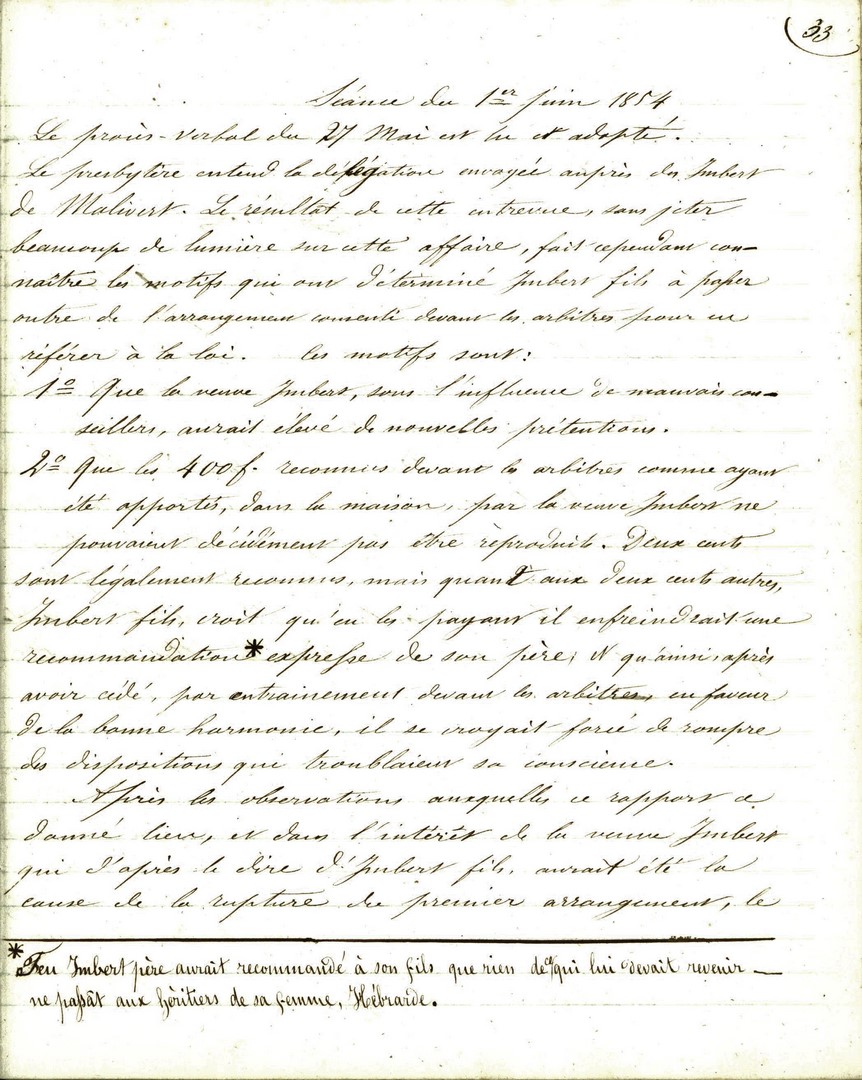 33
Séance du 1er juin 1854
Le procès-verbal du 27 Mai est lu et adopté.
Le presbytère entend la délégation envoyée auprès des Imbert
de Malivert. Le résultat de cette entrevue, sans jeter
beaucoup de lumière sur cette affaire, fait cependant con-
naître les motifs qui ont déterminé Imbert fils à passer
outre de l'arrangement consenti devant les arbitres pour en
référer à la loi. Ces motifs sont:
1o Que la veuve Imbert, sous l'influence de mauvais con-
seillers, aurait élevé de nouvelles prétentions.
2o Que les 400 f. reconnus devant les arbitres comme ayant
été apportés, dans la maison, par la veuve Imbert ne
pouvaient décidément pas être reproduits. Deux cents
sont légalement reconnus, mais quant aux deux cents autres,
Imbert fils, croit qu'en les payant il enfreindrait une
recommandation * expresse de son père; et qu'ainsi, après
avoir cédé, par entrainement devant les arbitres, en faveur
de la bonne harmonie, il se croyait forcé de rompre
des dispositions qui troublaient sa conscience.
Après les observations auxquelles ce rapport a
donné lieu, et dans l'intérêt de la veuve Imbert
qui d'après le dire d'Imbert fils, aurait été la
cause de la rupture du premier arrangement, le
* Feu Imbert père aurait recommandé à son fils que rien de qui lui devait revenir
ne passât aux héritiers de sa femme, Hébrarde.